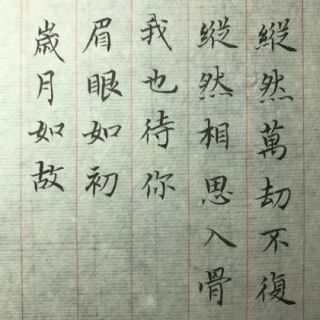 縱然萬劫不復
縱然相思入骨
我也待你
眉眼如初
歲月如故